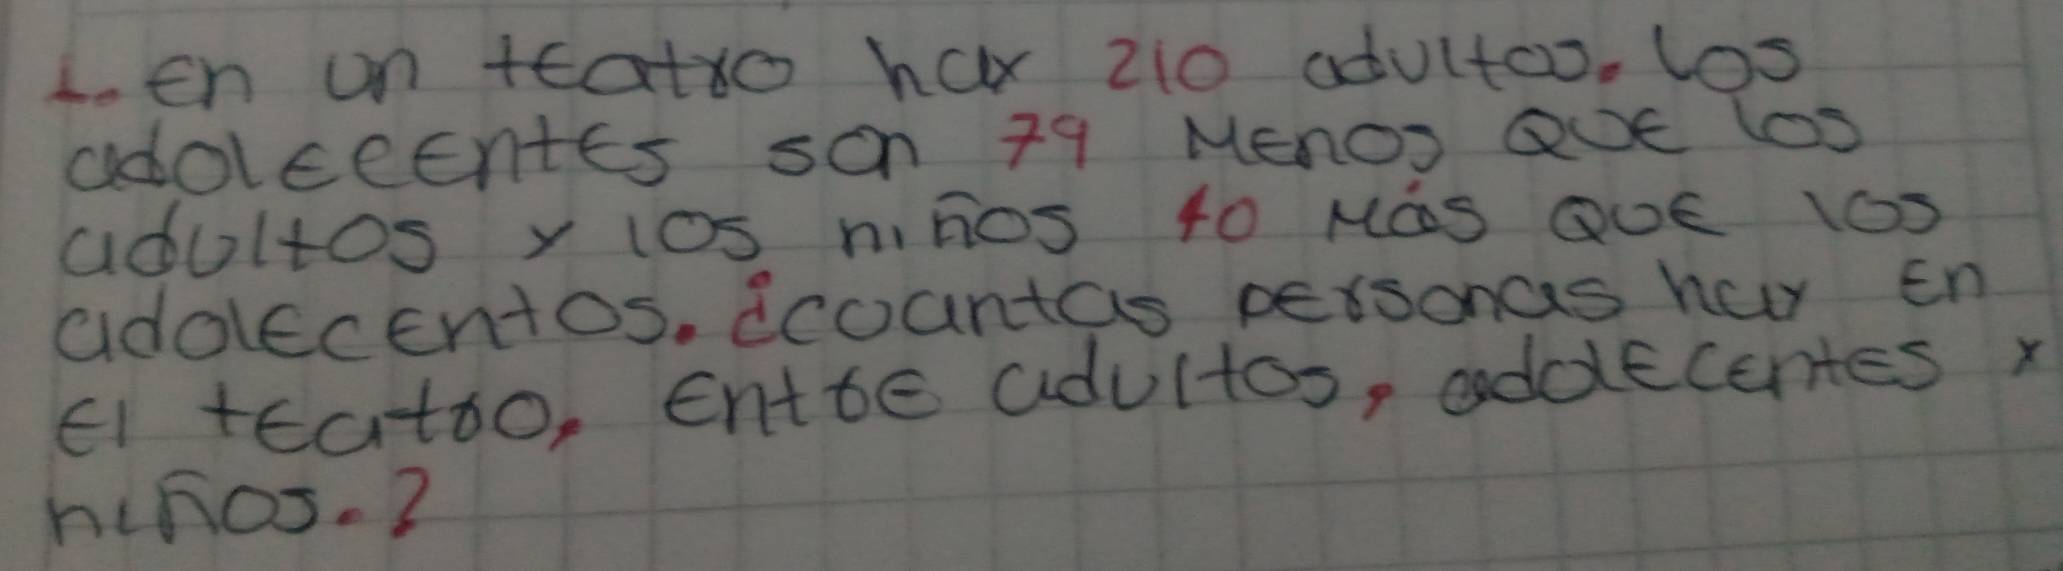 1. En un teatro hay 210 adultos. los
adoleceentes son 79 Menos QUE los
adultos y los niños 40 Más QUE los
adolecentos. ¿cuantas personas hay En
El teatro, Entre adultos, adolecentes y
niños.?